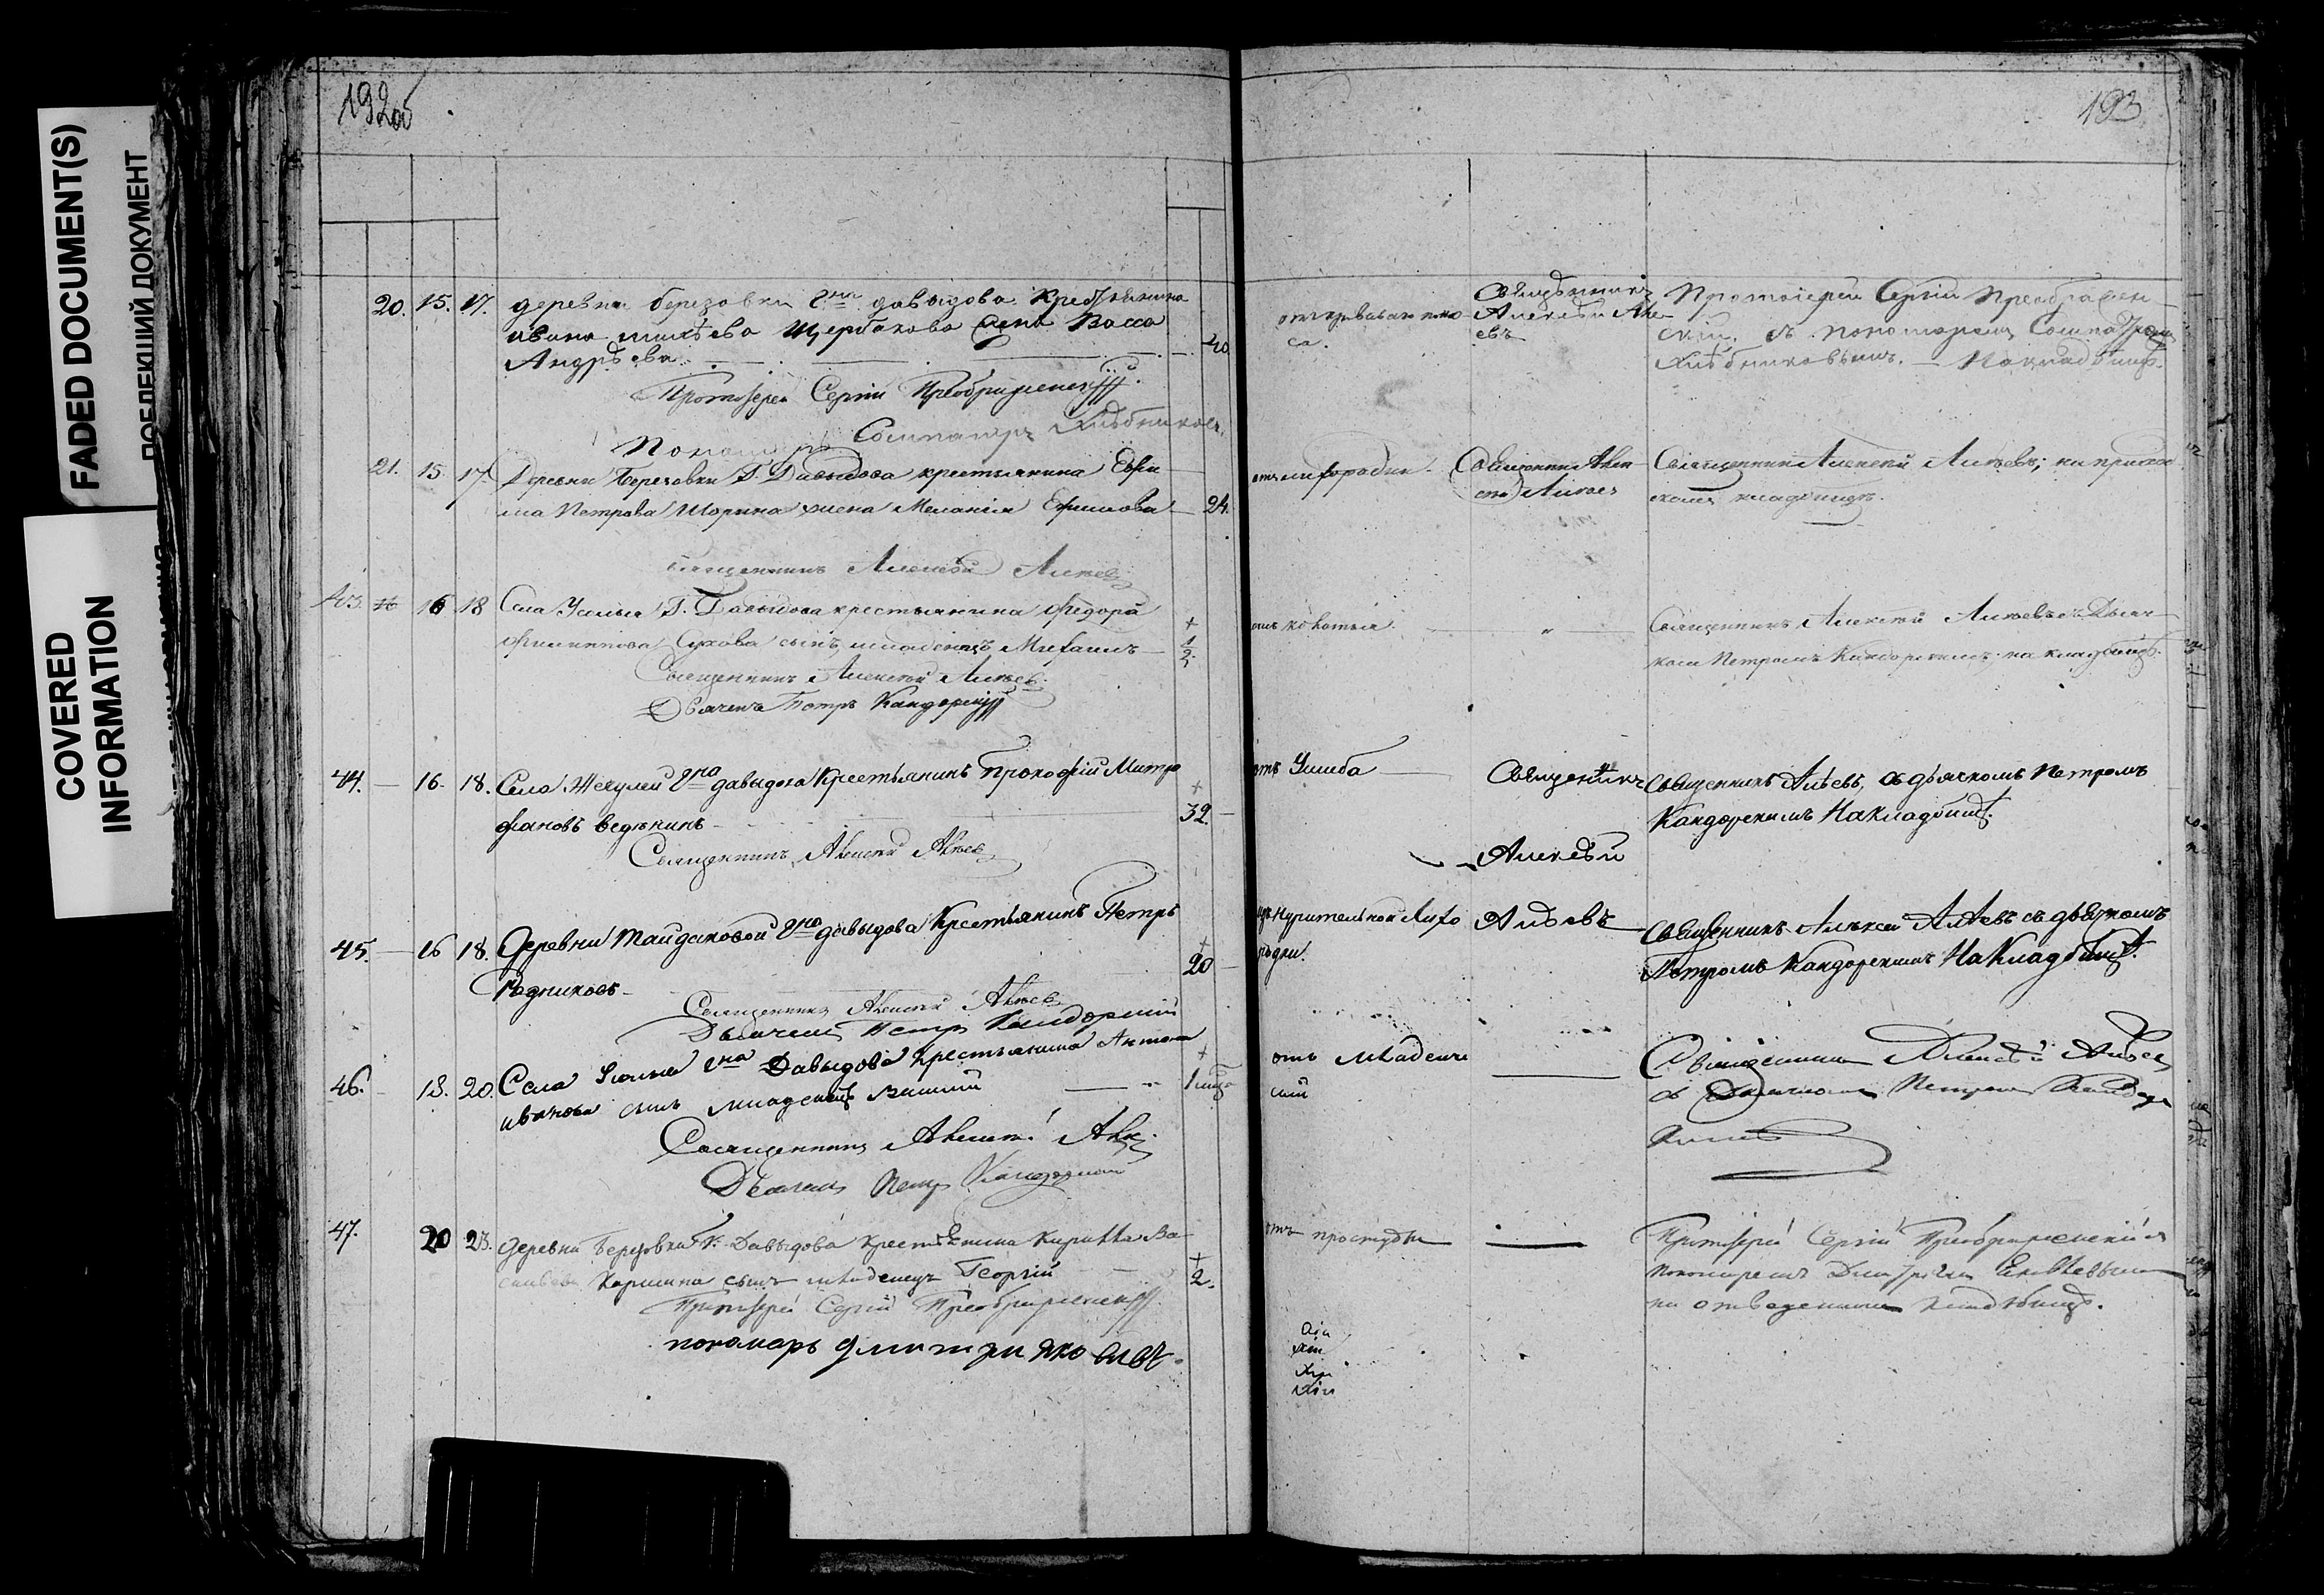 192об
193
FADED DOCUMENT(S)
COVERED
INFORMATION
20. 15. 17. деревни березовки Гна давыдова Крестьянина
ивана Щербакова жена Васса
Андрѣева
20
Протоіерей Сергій Преображенскій
Пономарь Хлѣбниковъ
от кроваваго поно-
са.
Священникъ
Алексѣй Али-
евъ
Протоіерей Сергій Преображен-
скій съ пономаремъ
Хлѣбниковымъ. На кладбищѣ.
21. 15. 17. Деревни Березовки Г. Давыдова крестьянина Ефи-
ма Петрова Шорина жена Меланія Ефимова 24.
Священникъ Алексѣй Аліевъ
отъ лихорадки
Священникъ Алек-
сѣй Аліевъ
Священникъ Алексѣй Аліевъ; на приход-
скомъ кладбищѣ.
43. 16 18 Села Усолья Г. Давыдова крестьянина Федора
Филиппова Сухова сынъ младенецъ Михаилъ
1/2
Священникъ Алексѣй Аліевъ
Дьячекъ Петръ Кандорскій
Священникъ Алексѣй Аліевъ съ Дьяч-
комъ Петромъ Кандорскимъ; на кладбищѣ.
44. 16. 18. Села Жегулей Гна давыдова Крестьянинъ Прокофій Митро
фановъ ведѣнинъ
32.
Священникъ Алексѣй Аліевъ
отъ Ушиба
Священникъ
Алексѣй
Священникъ Аліевъ, съ дьячкомъ Петромъ
Кандорскимъ На Кладбищѣ.
45. 16 18. Деревни Тайдаковой Гна давыдова Крестьянинъ Петръ
Родниковъ
20
Священникъ Алексѣй Аліевъ
Дьячекъ Петръ Кандорскій
изнурительной Лихо
радки.
Аліевъ
Священникъ Алексѣй Аліевъ съ дьячкомъ
Петромъ Кандорскимъ На Кладбищѣ.
46. 18. 20. Села Усолья Гна Давыдова крестьянина Антона
иванова сынъ младенецъ
Священникъ Алексѣй Аліевъ
Дьячекъ Петръ Кандорскій
отъ младенче
ской
Священникъ Алексѣй Аліевъ
съ Дьячкомъ Петромъ Кандор
скимъ
47. 20 23. деревни Березовки Г. Давыдова крестьянина Кирилла Ва-
сильева Каршина сынъ младенецъ Георгій
2.
Протоіерей Сергій Преображенскій
пономарь дмитри яковлевъ
отъ простуды
Протоіерей Сергій Преображенскій съ
пономаремъ Дмитріемъ Яковлевымъ
на отведенномъ кладбищѣ.